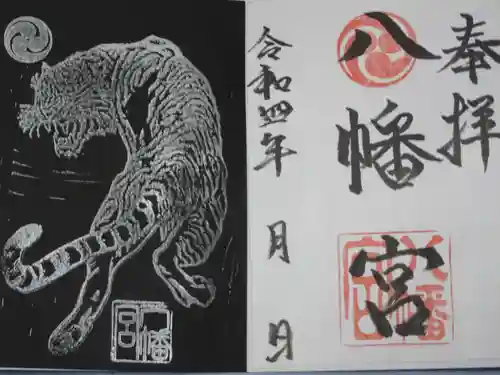 奉拝
八幡宮
令和四年　月　日
八幡
宮
八幡
宮